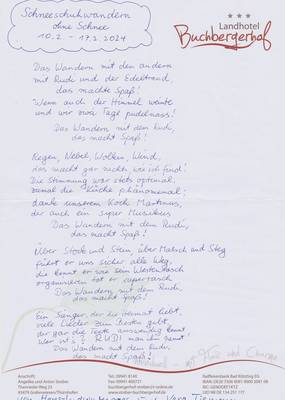 Schneeschuhwandern
ohne Schnee
10.2. - 17.2.2024
★★★
Landhotel
Buchbergerhof
Das Wandern mit den andern
mit Rudi und der Edeltraud,
das machte Spaß!
Wenn auch der Himmel weinte
und wir zwoa Tage pudelnass!
Das Wandern mit dem Rudi,
das macht Spaß!
Regen, Nebel, Wolken, Wind,
das macht gar nichts wie ich find!
Die Stimmung war stets optimal,
zumal die Küche phänomenal:
dank unserem Koch Martinus,
der auch ein super Musikus
Das Wandern mit dem Rudi,
das macht Spaß!
Über Stock und Stein, über Matsch und Steg
führt er uns sicher alle Weg,
die kennt er wie sein Westentasch
organisieren tat er supertasch
Das Wandern mit dem Rudi,
das macht Spaß!
Ein Sänger, der die Heimat liebt,
viele Lieder zum Besten gibt,
der gar die Texte auswendig kennt
Wer ist's? RUDI man ihn nennt!
Das Wandern mit dem Rudi,
das macht Spaß!
mit und Charme
Anschrift:
Angelika und Anton Stoiber
Thenrieder Weg 23
Tel. 09941 8146
Raiffeisenbank Bad Kötzting EG